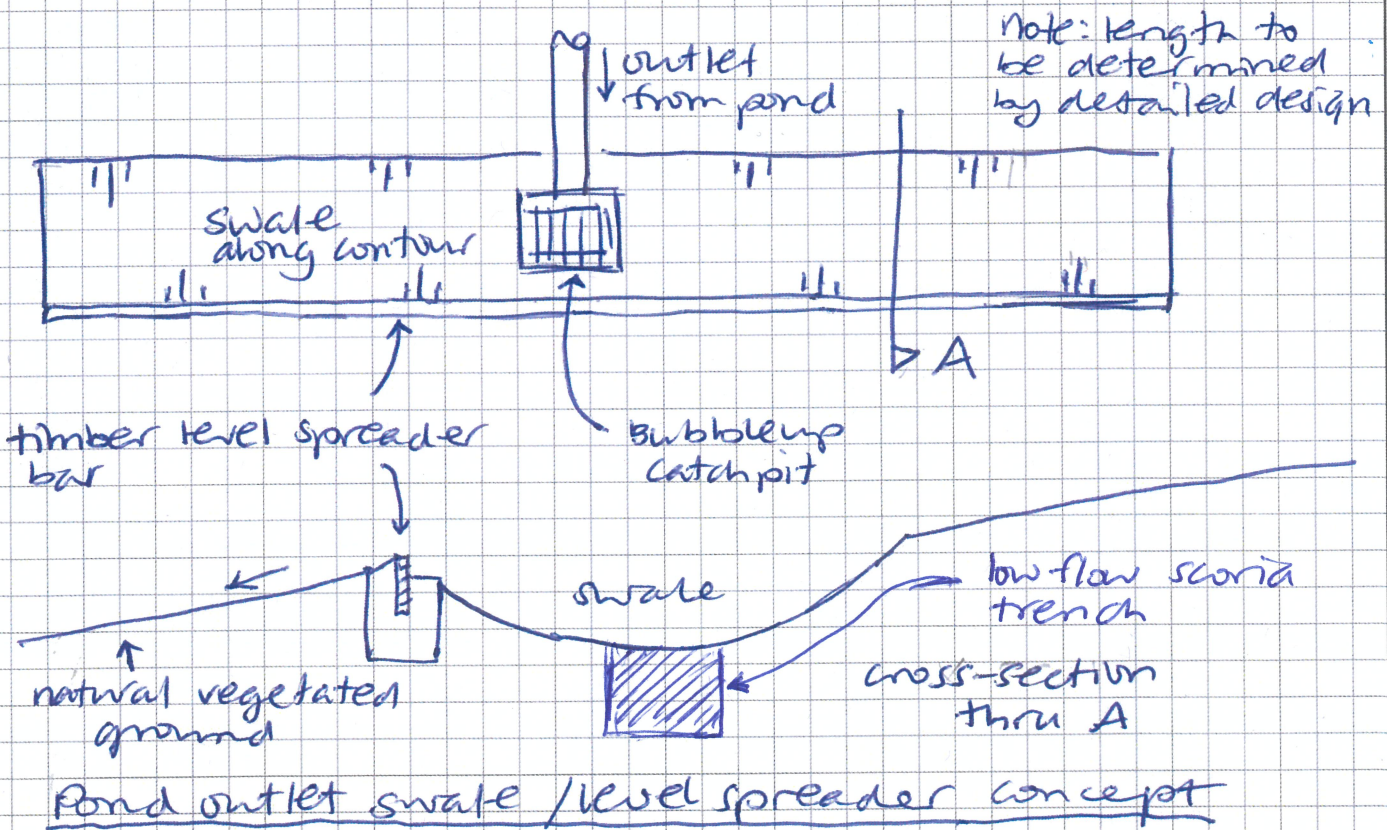 note: length to
be determined
by detailed design
outlet
from pond
swale
along contour
A
timber level spreader
bar
Bubbleup
catchpit
swale
low flow scoria
trench
natural vegetated
ground
cross-section
thru A
Pond outlet swale / level spreader concept